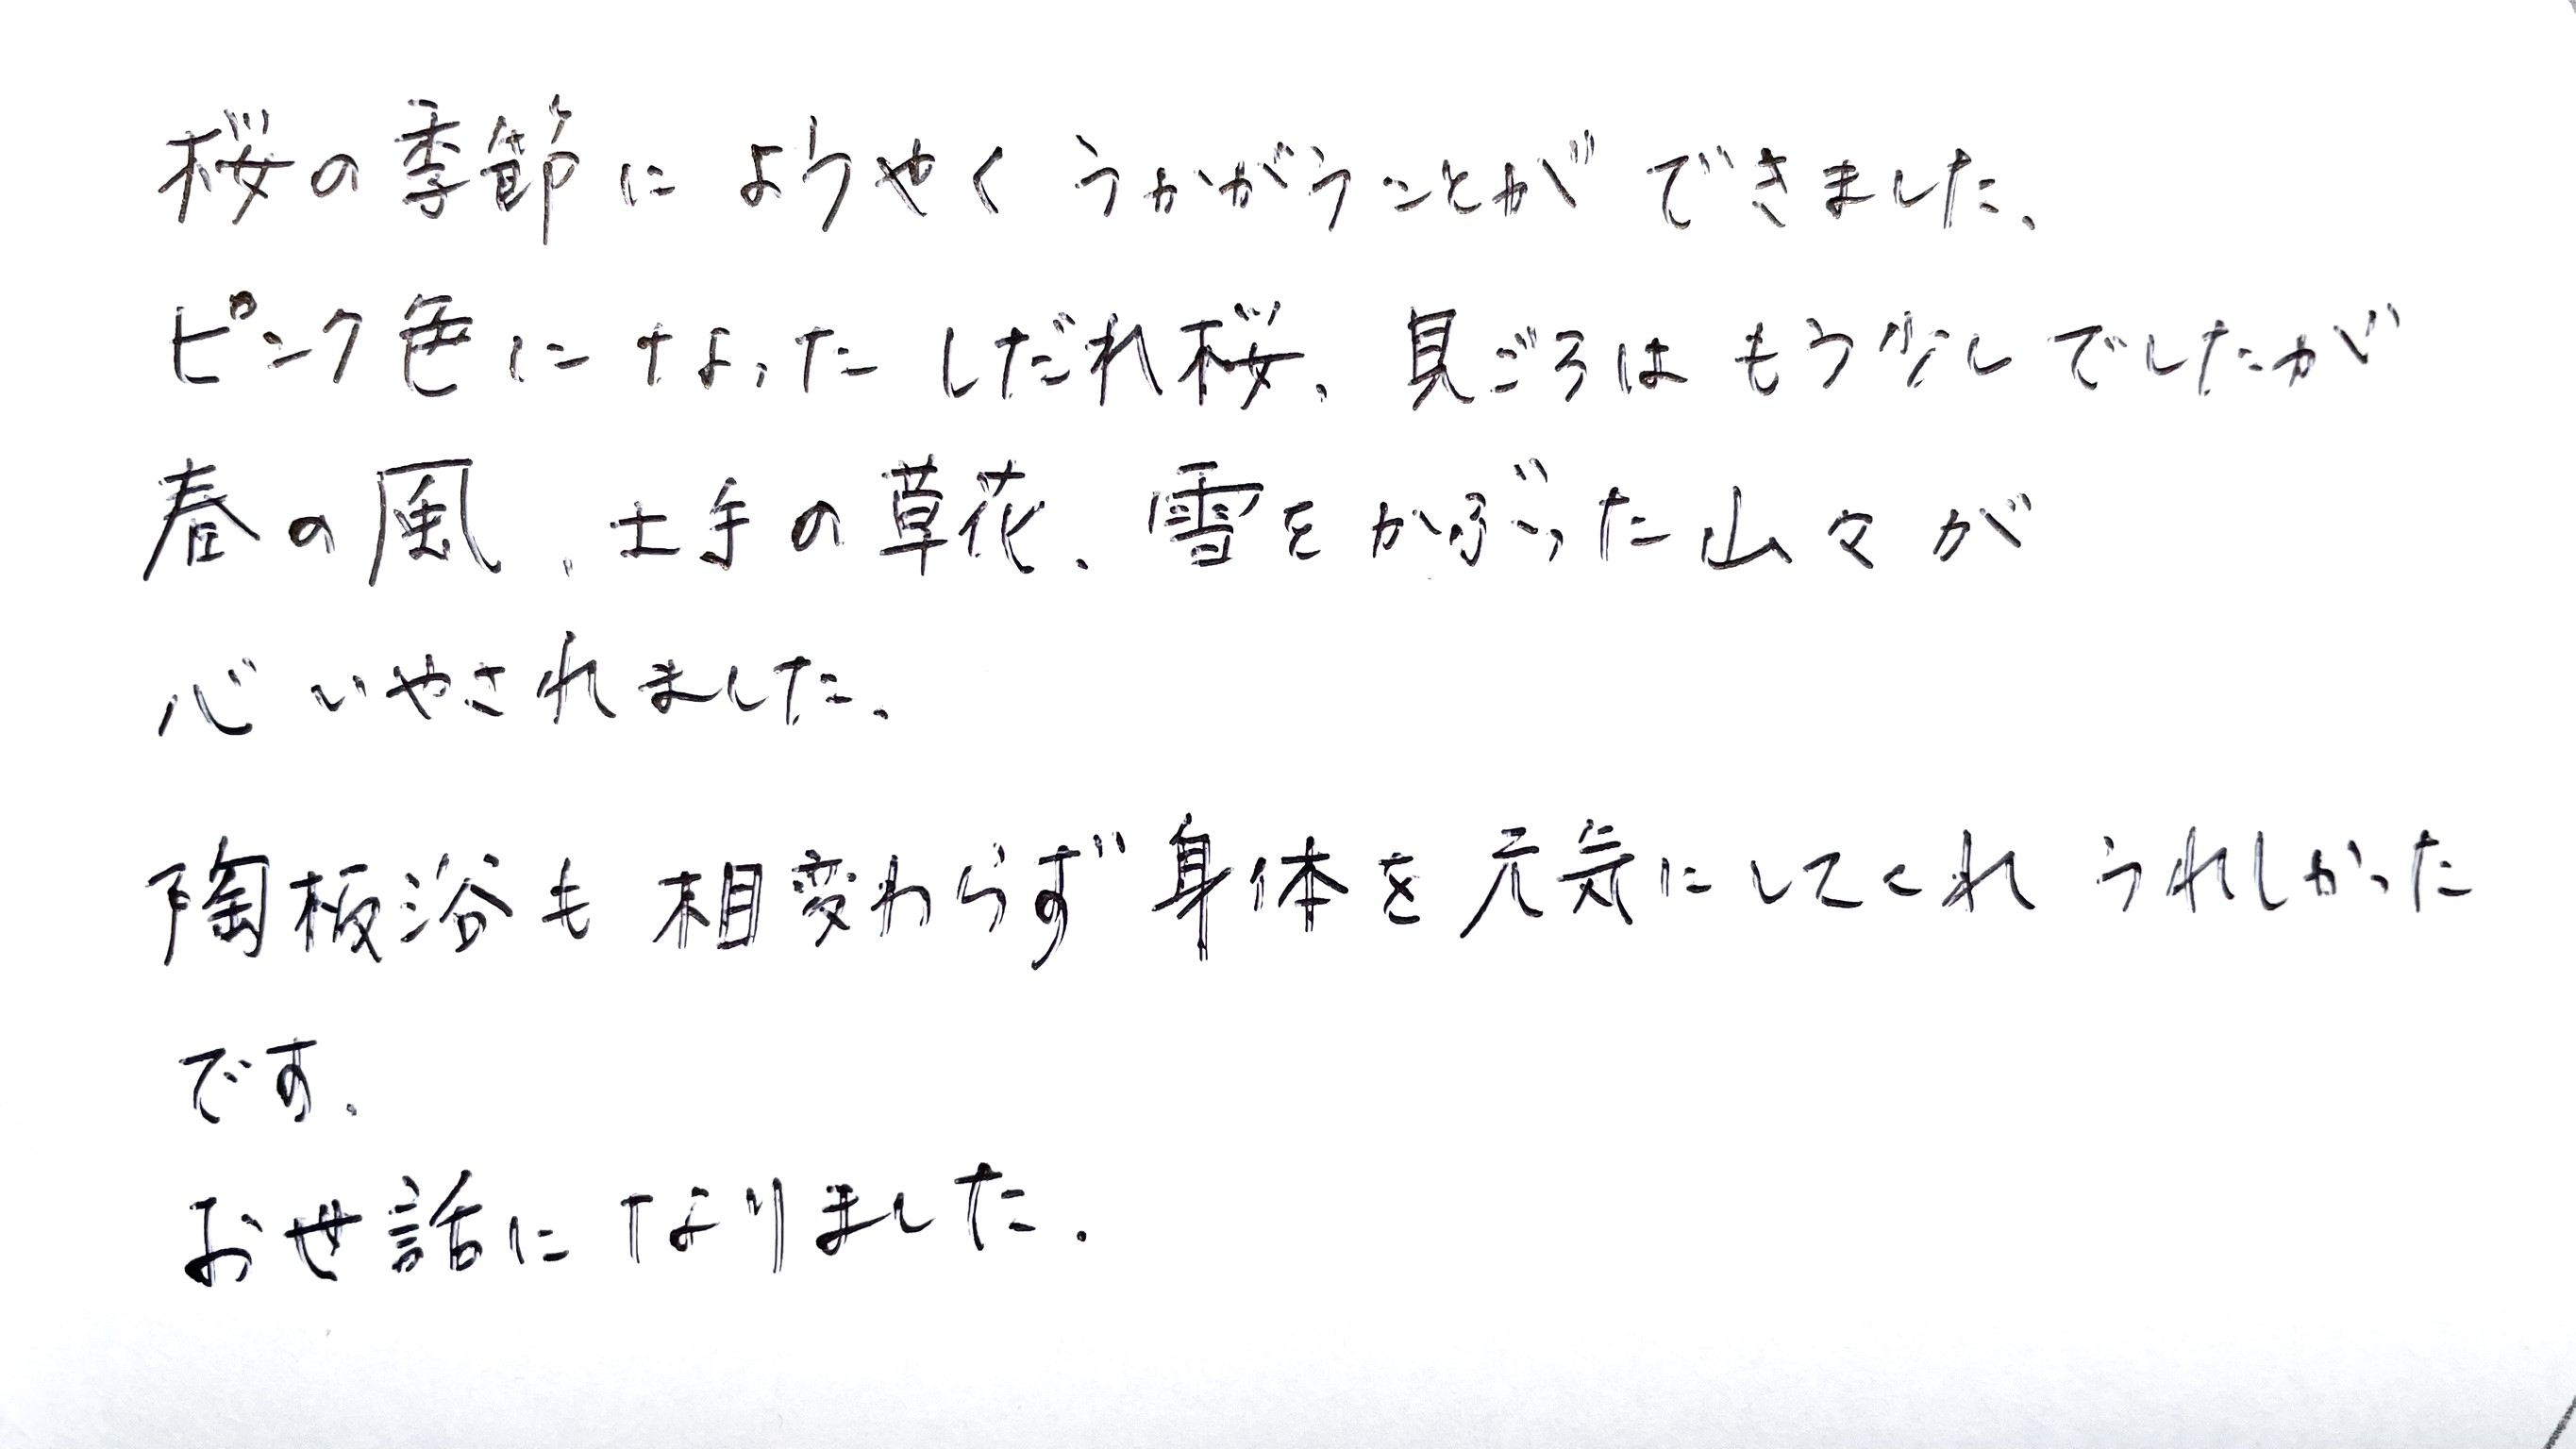 桜の季節にようやくうかがうことができました、
ピンク色になったしだれ桜、見ごろはもう少しでしたが
春の風、土手の草花、雪をかぶった山々が
心いやされました、
陶板浴も相変わらず身体を元気にしてくれうれしかった
です.
お世話になりました.